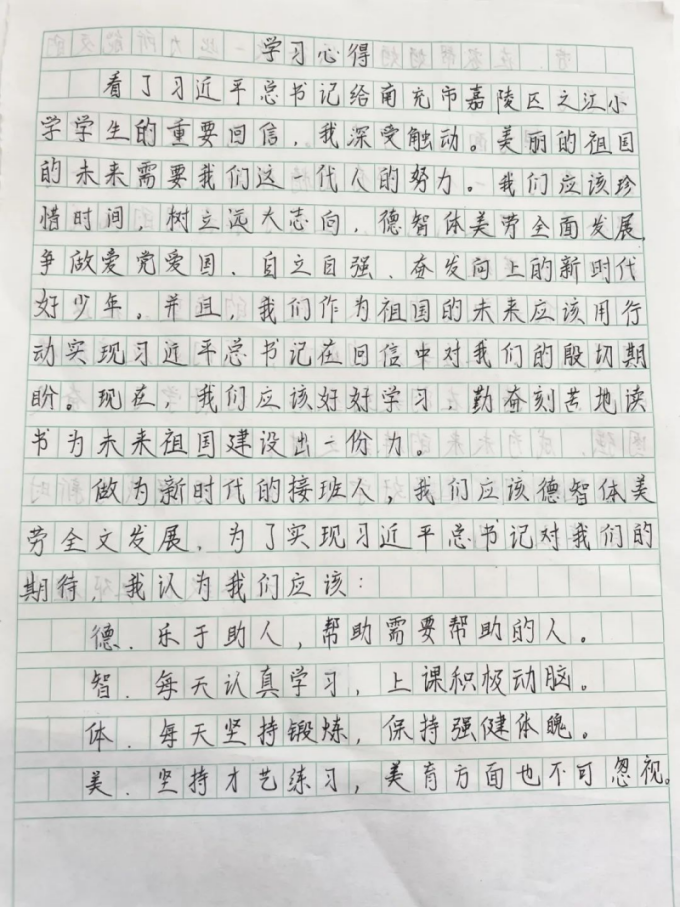 学习心得
看了习近平总书记给南充市嘉陵区之江小
学学生的重要回信，我深受触动。美丽的祖国
的未来需要我们这一代人的努力。我们应该珍
惜时间，树立远大志向，德智体美劳全面发展，
争做爱党爱国、自立自强、奋发向上的新时代
好少年。并且，我们作为祖国的未来应该用行
动实现习近平总书记在回信中对我们的殷切期
盼。现在，我们应该好好学习，勤奋刻苦地读
书为未来祖国建设出一份力。
做为新时代的接班人，我们应该德智体美
劳全文发展，为了实现习近平总书记对我们的
期待，我认为我们应该：
德．乐于助人，帮助需要帮助的人。
智．每天认真学习，上课积极动脑。
体．每天坚持锻炼，保持强健体魄。
美．坚持才艺练习，美育方面也不可忽视。